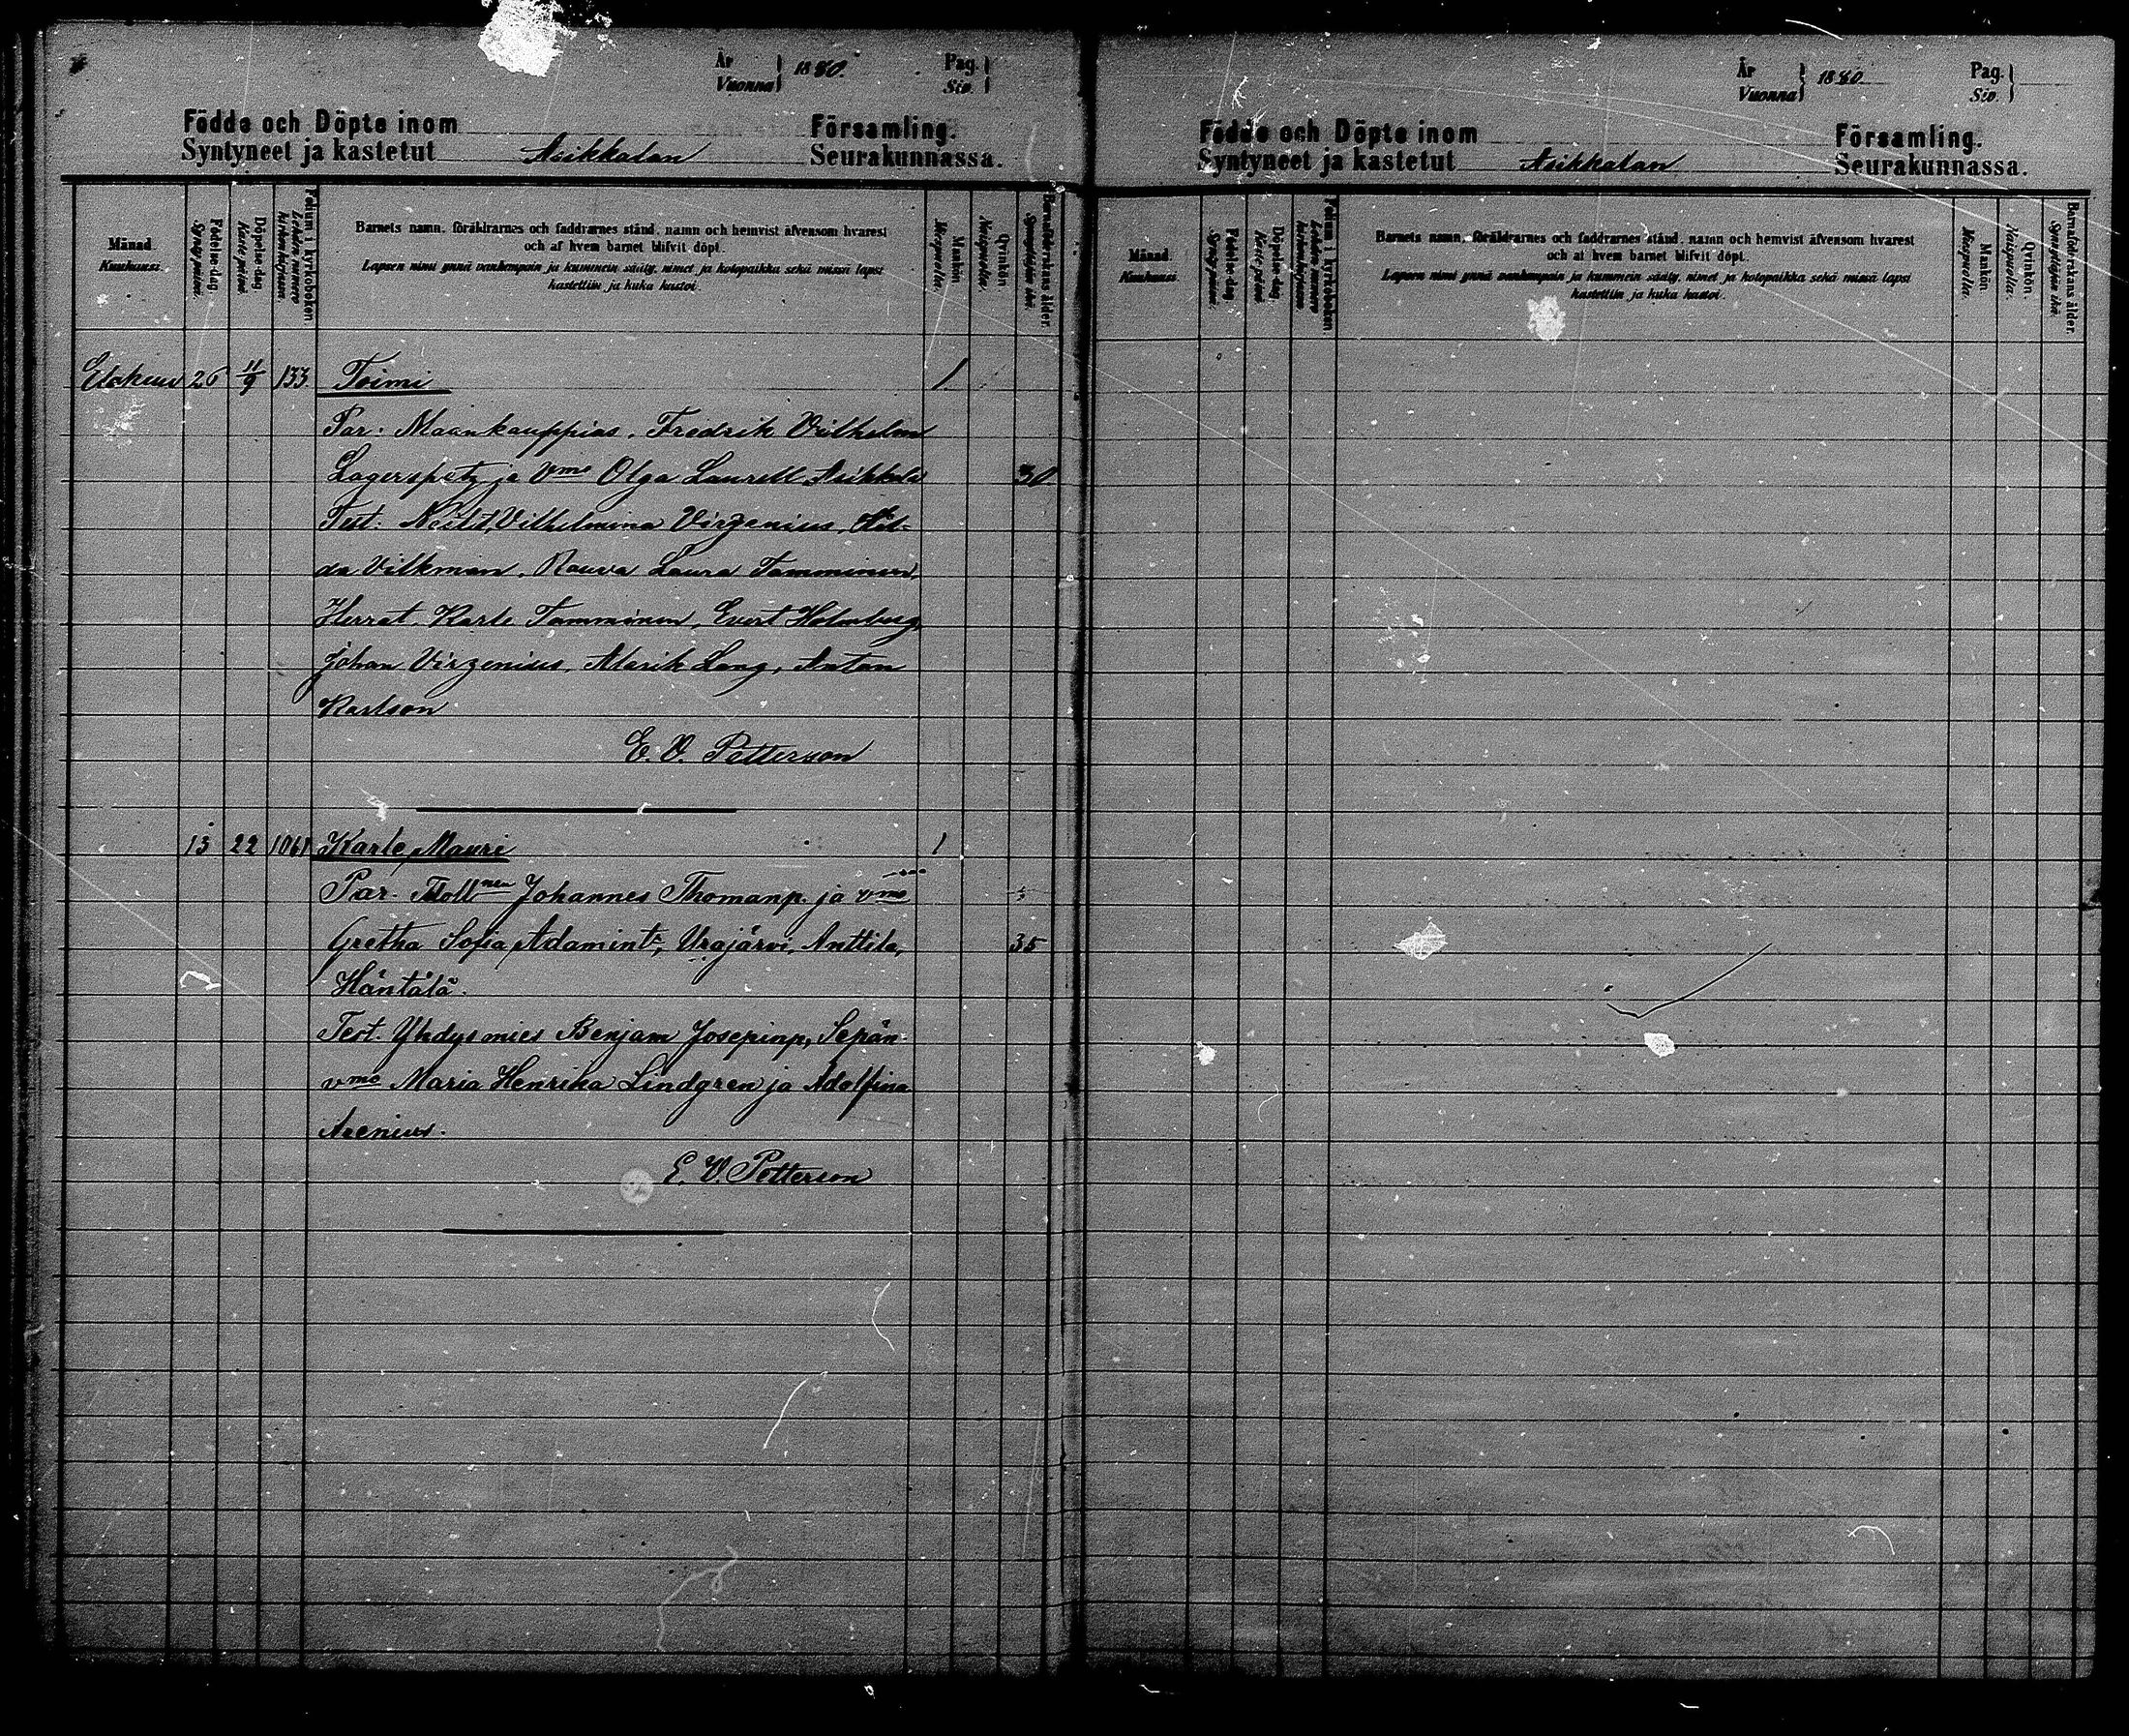 År
Vuonna } 1880.
Pag.
Siv.
Födde och Döpte inom Församling.
Syntyneet ja kastetut Asikkalan Seurakunnassa.
Månad.
Kuukausi.
Födelse-dag.
Synty päivä.
Döpelse-dag.
Kaste päivä.
Folium i kyrkoboken.
Lehden numero kirkonkirjassa.
Barnets namn, föräldrarnes och faddrarnes stånd, namn och hemvist äfvensom hvarest
och af hvem barnet blifvit döpt.
Lapsen nimi ynnä vanhempain ja kummein sääty, nimet ja kotopaikka sekä missä lapsi
kastettiin ja kuka kastoi.
Mankön.
Miespuolia.
Qvinkön.
Naispuolia.
Barnaföderskans ålder.
Synnyttäjän ikä.
Elokuu 26 11/9 133 Toimi 1
Par. Maankauppias, Fredrik Vilhelm
Lagerspetz ja Vmo Olga Laurell Asikkala 30
Test. Neidit, Vilhelmina Virzenius, Hil-
da Vilkman, Rouva Laura Tamminen,
Herrat, Karle Tamminen, Evert Holmberg,
Johan Virzenius, Alarik Lang, Anton
Karlson
E. V. Petterson
13 22 1061 Karle Mauri 1
Par. Tsollnen Johannes Thomanp. ja vmo
Gretha Sofia Adamint:, Urajärvi, Anttila, 35
Häntälä.
Test. Yhdysmies Benjam Josepinp, Sepän
vmo Maria Henrika Lindgren ja Adolfina
Arenius.
E. V. Petterson
År
Vuonna } 1880
Pag.
Siv.
Födde och Döpte inom Församling.
Syntyneet ja kastetut Asikkalan Seurakunnassa.
Månad.
Kuukausi.
Födelse-dag.
Synty päivä.
Döpelse-dag.
Kaste päivä.
Folium i kyrkoboken.
Lehden numero kirkonkirjassa.
Barnets namn, föräldrarnes och faddrarnes stånd, namn och hemvist äfvensom hvarest
och af hvem barnet blifvit döpt.
Lapsen nimi ynnä vanhempain ja kummein sääty, nimet ja kotopaikka sekä missä lapsi
kastettiin ja kuka kastoi.
Mankön.
Miespuolia.
Qvinkön.
Naispuolia.
Barnaföderskans ålder.
Synnyttäjän ikä.